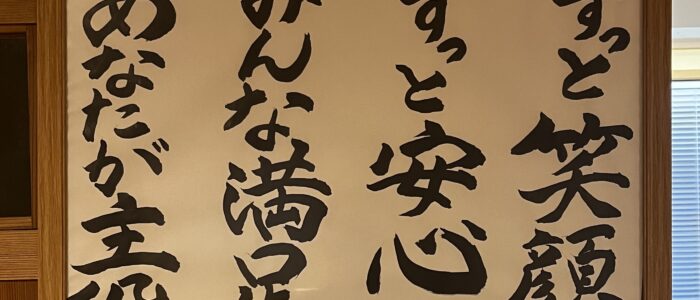 ずっと笑顔
ずっと安心
みんな満足
あなたが主役